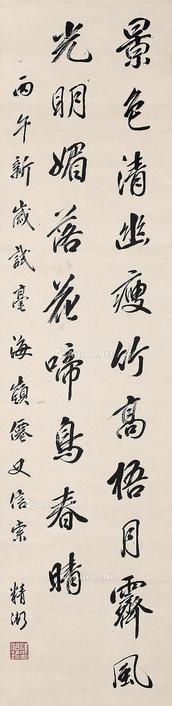 景色清幽瘦竹高梧月霽風
光明媚落花啼鳥春晴
丙午新歲試毫海嶺僊史信索
精瀏